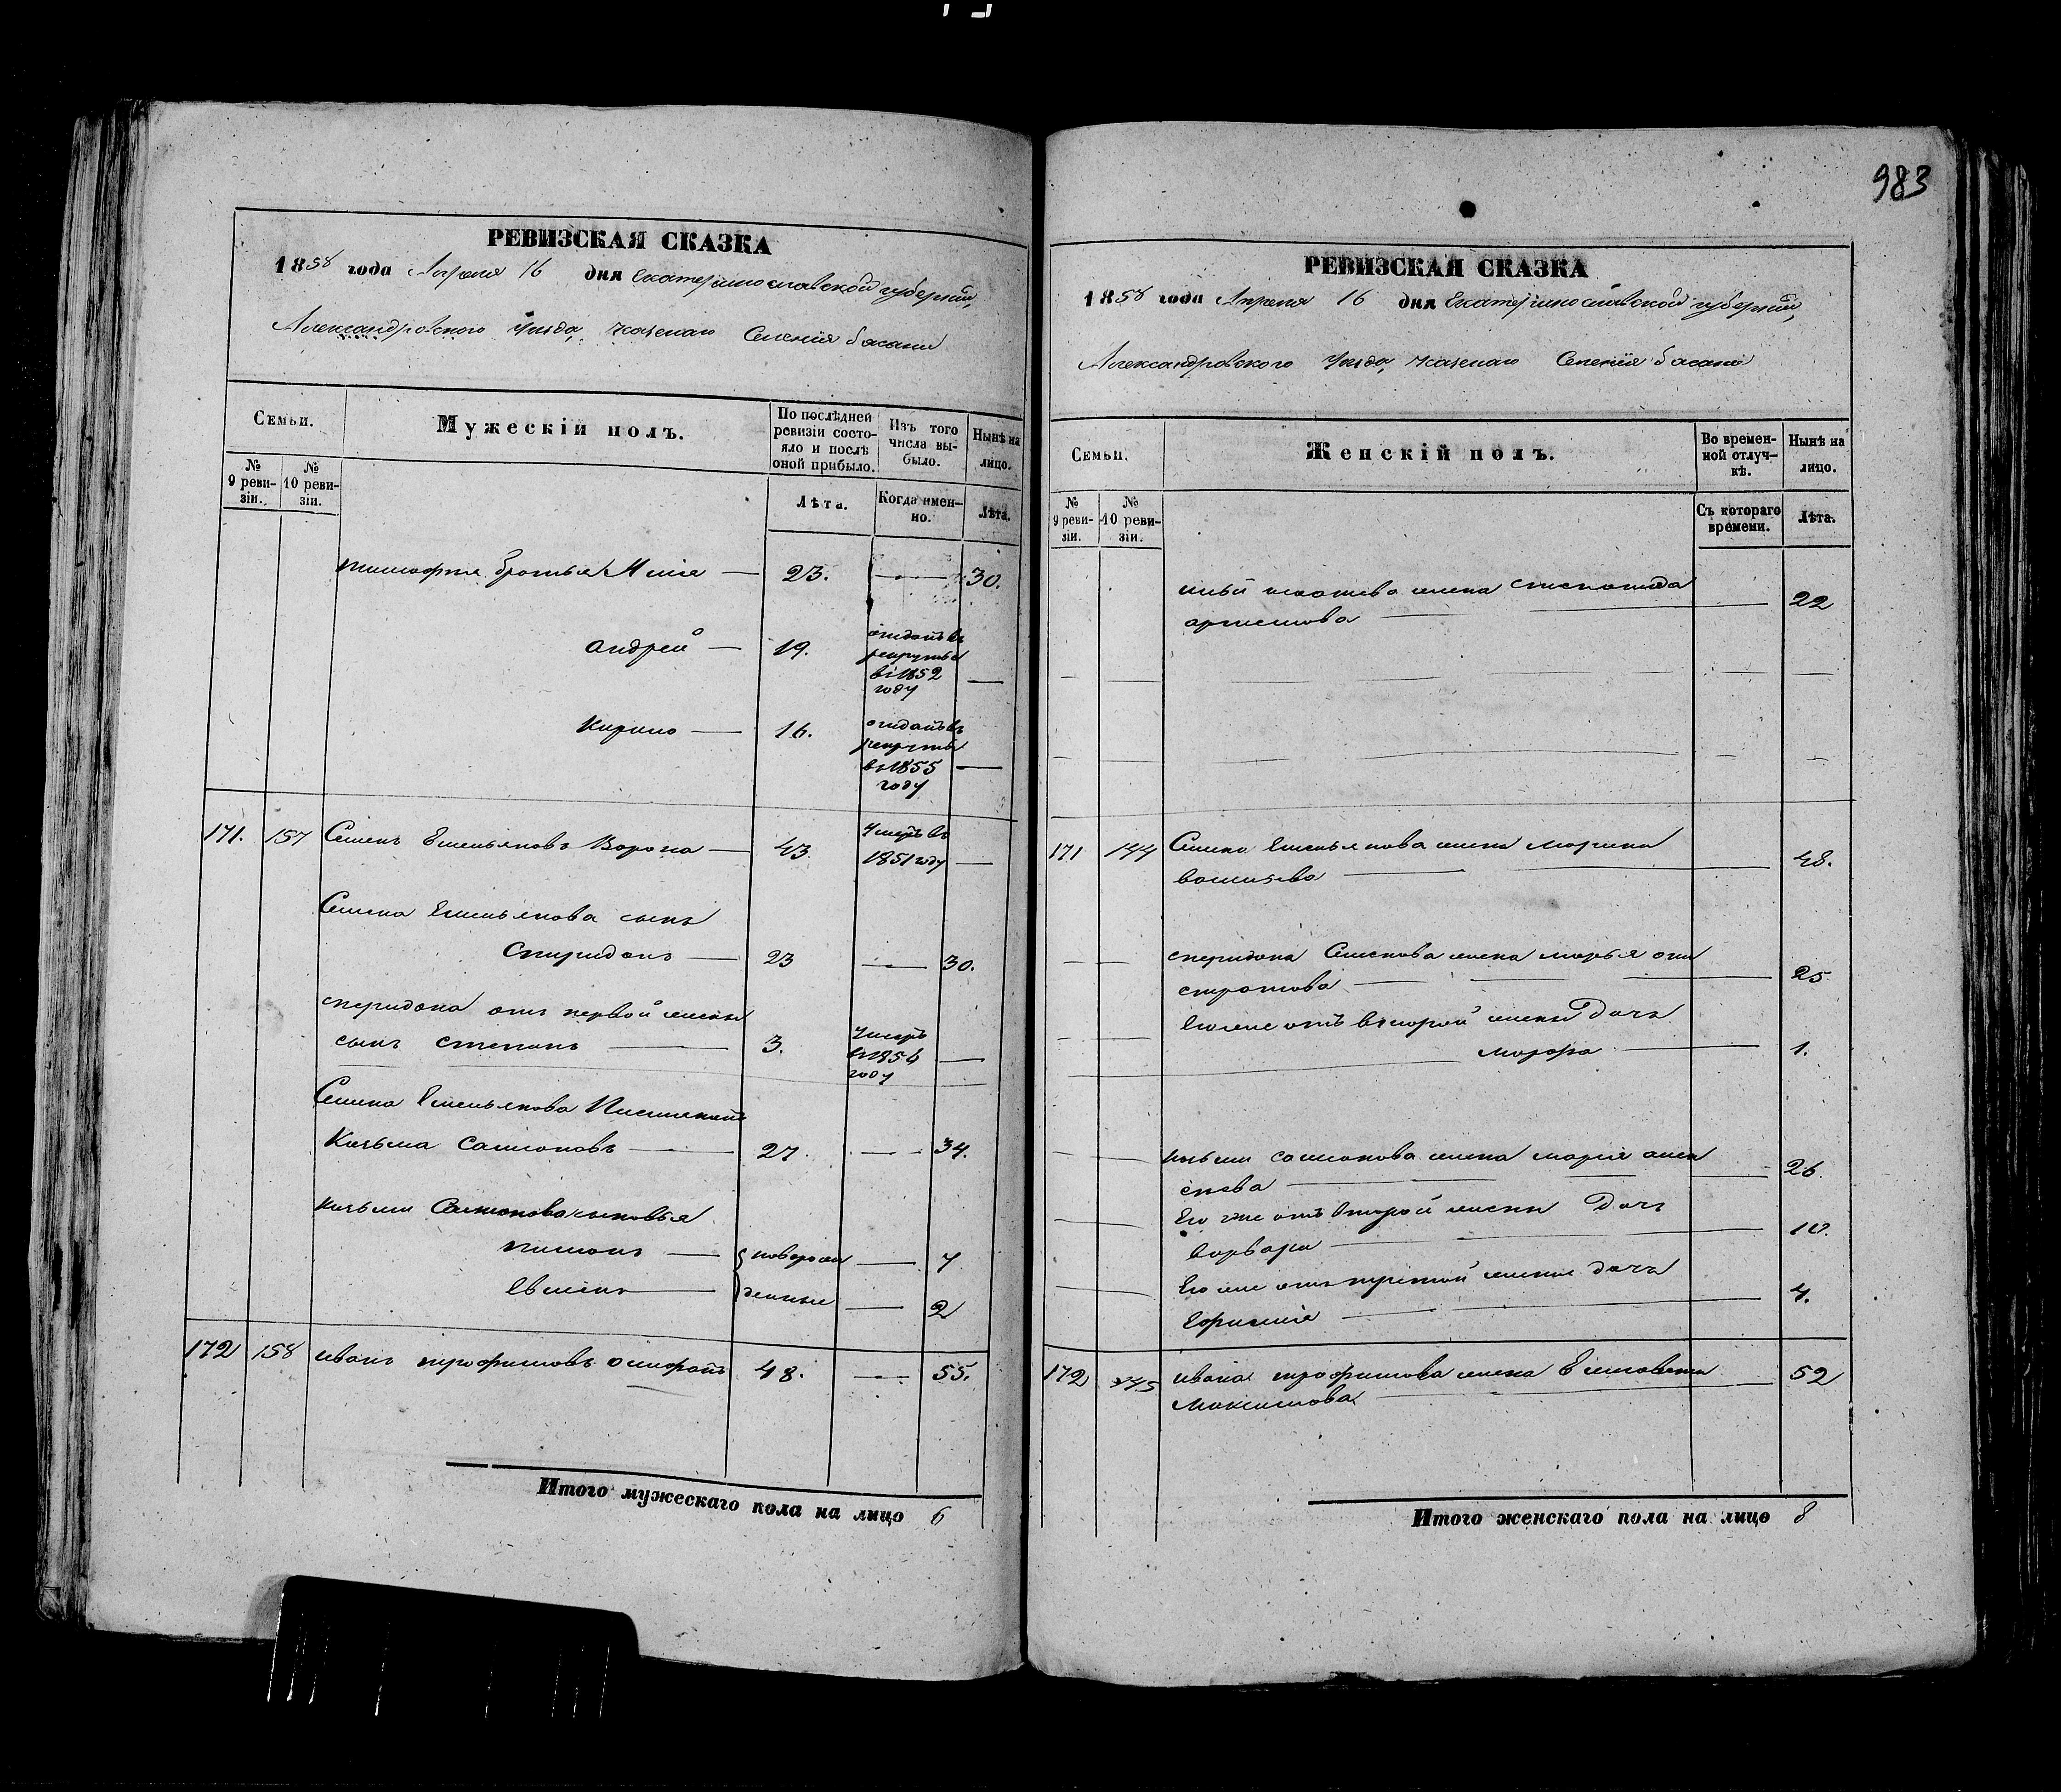 983
РЕВИЗСКАЯ СКАЗКА
1858 года Апреля 16 дня Екатеринославской губернии,
Александровского уезда, казенаго Селения Басани
Семьи.
Мужескій полъ.
По послѣдней ревизіи состояло и послѣ оной прибыло.
Изъ того числа выбыло.
Нынѣ на лицо.
№ 9 ревизіи.
№ 10 ревизіи.
Лѣта.
Когда именно.
Лѣта.
тимофея братья Илия — 23. — 30.
Андрей — 19. отданъ въ рекруты въ 1852 году —
Кирило — 16. отданъ въ рекруты въ 1855 году —
171. 157 Семенъ Емельяновъ Ворона — 43. Умеръ въ 1851 году —
Семена Емельянова сынъ
Спиридонъ — 23 — 30.
спиридона отъ первой жены
сынъ степанъ — 3. Умеръ въ 1854 году —
Семена Емельянова
Козьма Самсоновъ — 27. — 34.
козьми Самсонова сыновья
— новорож — 7
— денные — 2
172 158 иванъ трофимовъ 48. — 55.
Итого мужескаго пола на лицо 6
РЕВИЗСКАЯ СКАЗКА
1858 года Апреля 16 дня Екатеринославской губернии,
Александровского уезда, казенаго Селения Басани
Семьи.
Женскій полъ.
Во временной отлучкѣ.
Нынѣ на лицо.
№ 9 ревизіи.
№ 10 ревизіи.
Съ котораго времени.
Лѣта.
жена степанида
артемова — 22
171 144 Семена Емельянова жена марина
— 48.
спиридона Семенова жена марья они
стратова — 25
Его же отъ второй жены дочь
— 1.
козьми самсонова жена мария алек
сиева — 26.
Его же отъ второй жены дочь
варвара — 10.
Его же отъ третей жены дочь
— 4.
172 145 ивана трофимова жена Елисавета
Максимова — 52
Итого женскаго пола на лицо 8